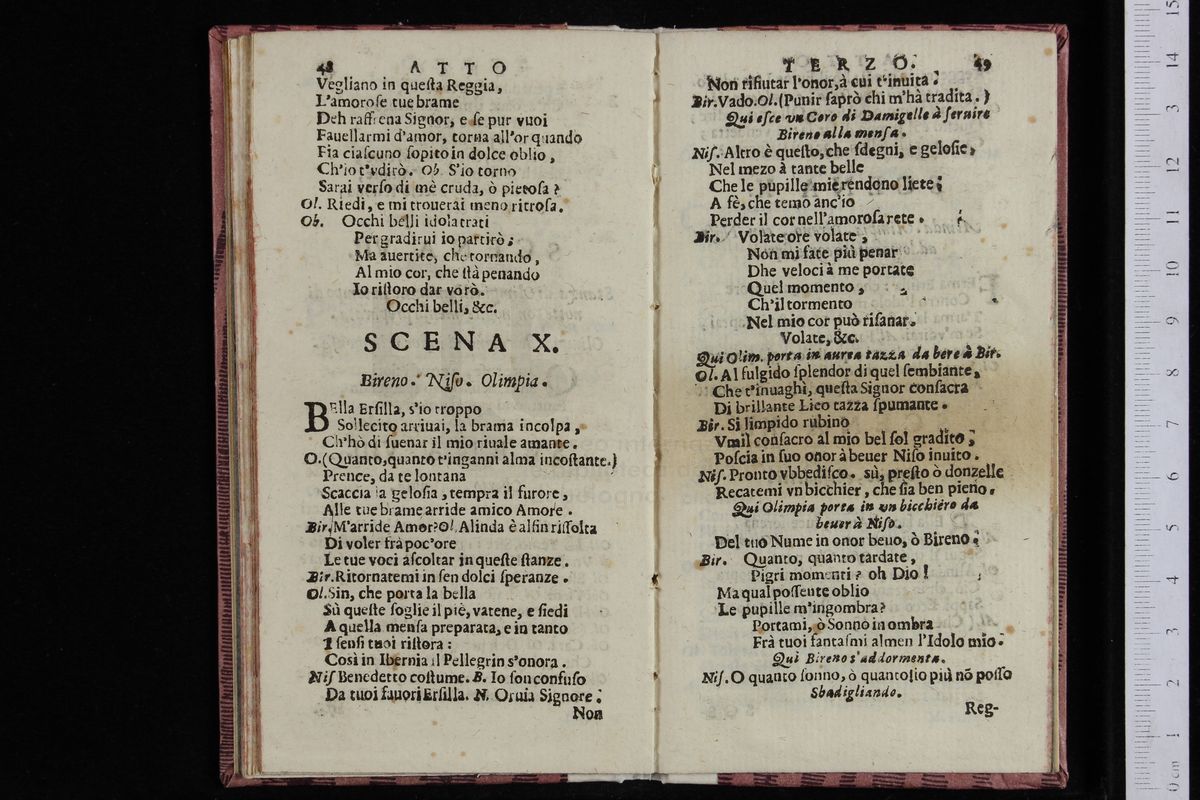 48 ATTO
Vegliano in queſta Reggia,
L'amoroſe tue brame
Deh raffrena Signor, e ſe pur vuoi
Fauellarmi d'amor, torna all'or quando
Fia ciaſcuno ſopito in dolce oblio,
Ch'io t'vdirò. Ob. S'io torno
Sarai verſo di mè cruda, ò pietoſa?
Ol. Riedi, e mi trouerai meno ritroſa.
Ob. Occhi belli idolatrati
Per gradirui io partirò;
Ma auertite, che tornando,
Al mio cor, che ſtà penando
Io riſtoro dar vorò.
Occhi belli, &c.
SCENA X.
Bireno. Niſo. Olimpia.
BElla Erſilla, s'io troppo
Sollecito arriuai, la brama incolpa,
Ch'hò di ſuenar il mio riuale amante.
O. (Quanto, quanto t'inganni alma incoſtante.)
Prence, da te lontana
Scaccia la geloſia, tempra il furore,
Alle tue brame arride amico Amore.
Bir. M'arride Amor? Ol. Alinda è alfin riſſolta
Di voler frà poc'ore
Le tue voci aſcoltar in queſte ſtanze.
Bir. Ritornatemi in ſen dolci ſperanze.
Ol. Sin, che porta la bella
Sù queſte ſoglie il piè, vatene, e ſiedi
A quella menſa preparata, e in tanto
I ſenſi tuoi riſtora:
Così in Ibernia il Pellegrin s'onora.
Niſ Benedetto coſtume. B. Io ſon confuſo
Da tuoi fauori Erſilla. N. Oruia Signore:
Non
TERZO. 49
Non rifiutar l'onor, à cui t'inuita.
Bir. Vado. Ol. (Punir ſaprò chi m'hà tradita.)
Qui eſce vn Coro di Damigelle à ſeruire
Bireno alla menſa.
Niſ. Altro è queſto, che ſdegni, e geloſie,
Nel mezo à tante belle
Che le pupille mie rendono liete;
A fè, che temo anc'io
Perder il cor nell'amoroſa rete.
Bir. Volate ore volate,
Non mi fate più penar
Dhe veloci à me portate
Quel momento,
Ch'il tormento
Nel mio cor può riſanar.
Volate, &c.
Qui Olim. porta in aurea tazza da bere à Bir.
Ol. Al fulgido ſplendor di quel ſembiante,
Che t'inuaghì, queſta Signor conſacra
Di brillante Lieo tazza ſpumante.
Bir. Si limpido rubino
Vmil conſacro al mio bel ſol gradito;
Poſcia in ſuo onor à beuer Niſo inuito.
Niſ. Pronto vbbediſco. sù, preſto ò donzelle
Recatemi vn bicchier, che ſia ben pieno.
Qui Olimpia porta in vn bicchiero da
beuer à Niſo.
Del tuo Nume in onor beuo, ò Bireno;
Bir. Quanto, quanto tardate,
Pigri momenti? oh Dio!
Ma qual poſſente oblio
Le pupille m'ingombra?
Portami, ò Sonno in ombra
Frà tuoi fantaſmi almen l'Idolo mio.
Quì Bireno s'addormenta.
Niſ. O quanto ſonno, ò quanto ſio più nõ poſſo
Sbadigliando.
Reg-